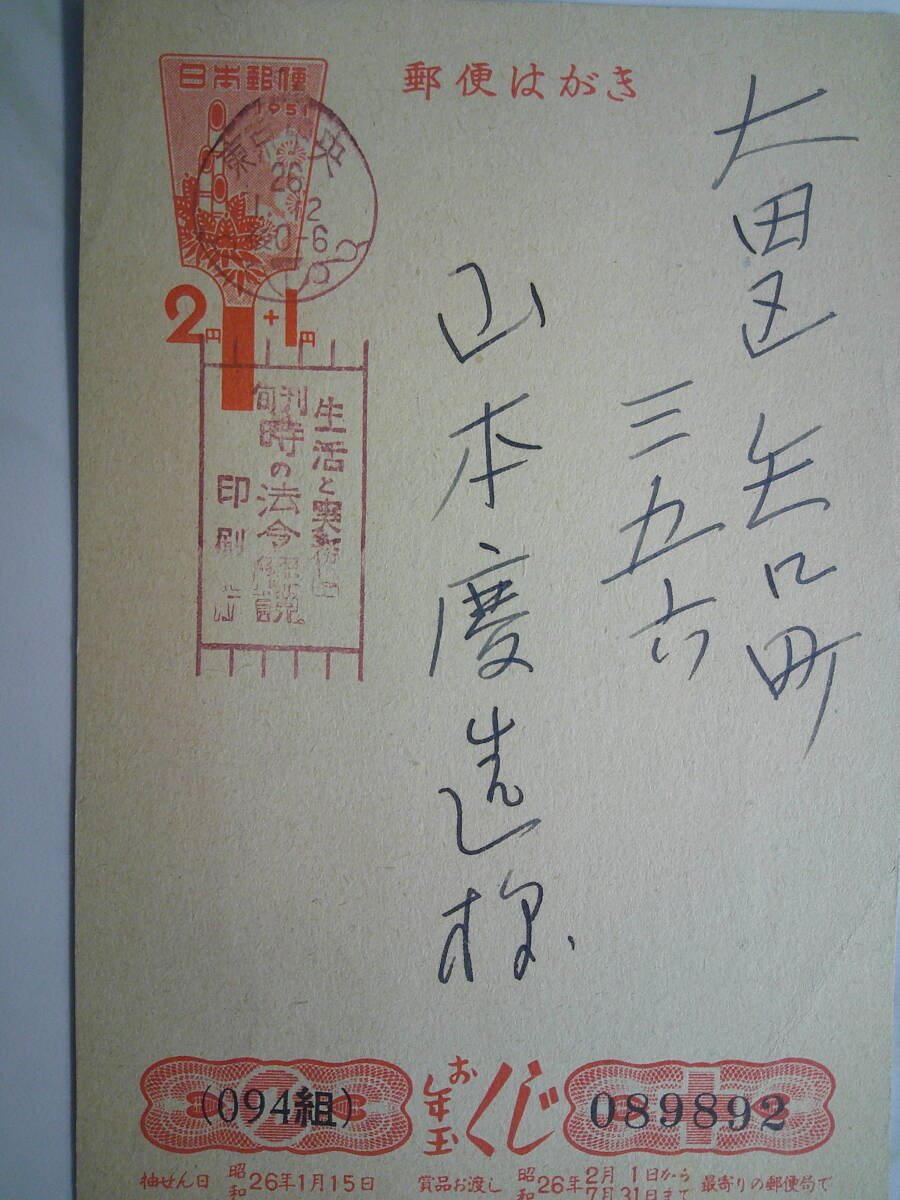 郵便はがき
日本郵便
1951
東京中央
26
1.12
後0-6
2円+1円
生活と実務に
旬刊 時の法令 解説
印刷庁
大田区矢口町
三五六
山本慶造様
(094組)
お年玉くじ
089892
抽せん日 昭和26年1月15日
賞品お渡し 昭和26年2月1日から7月31日まで 最寄りの郵便局で